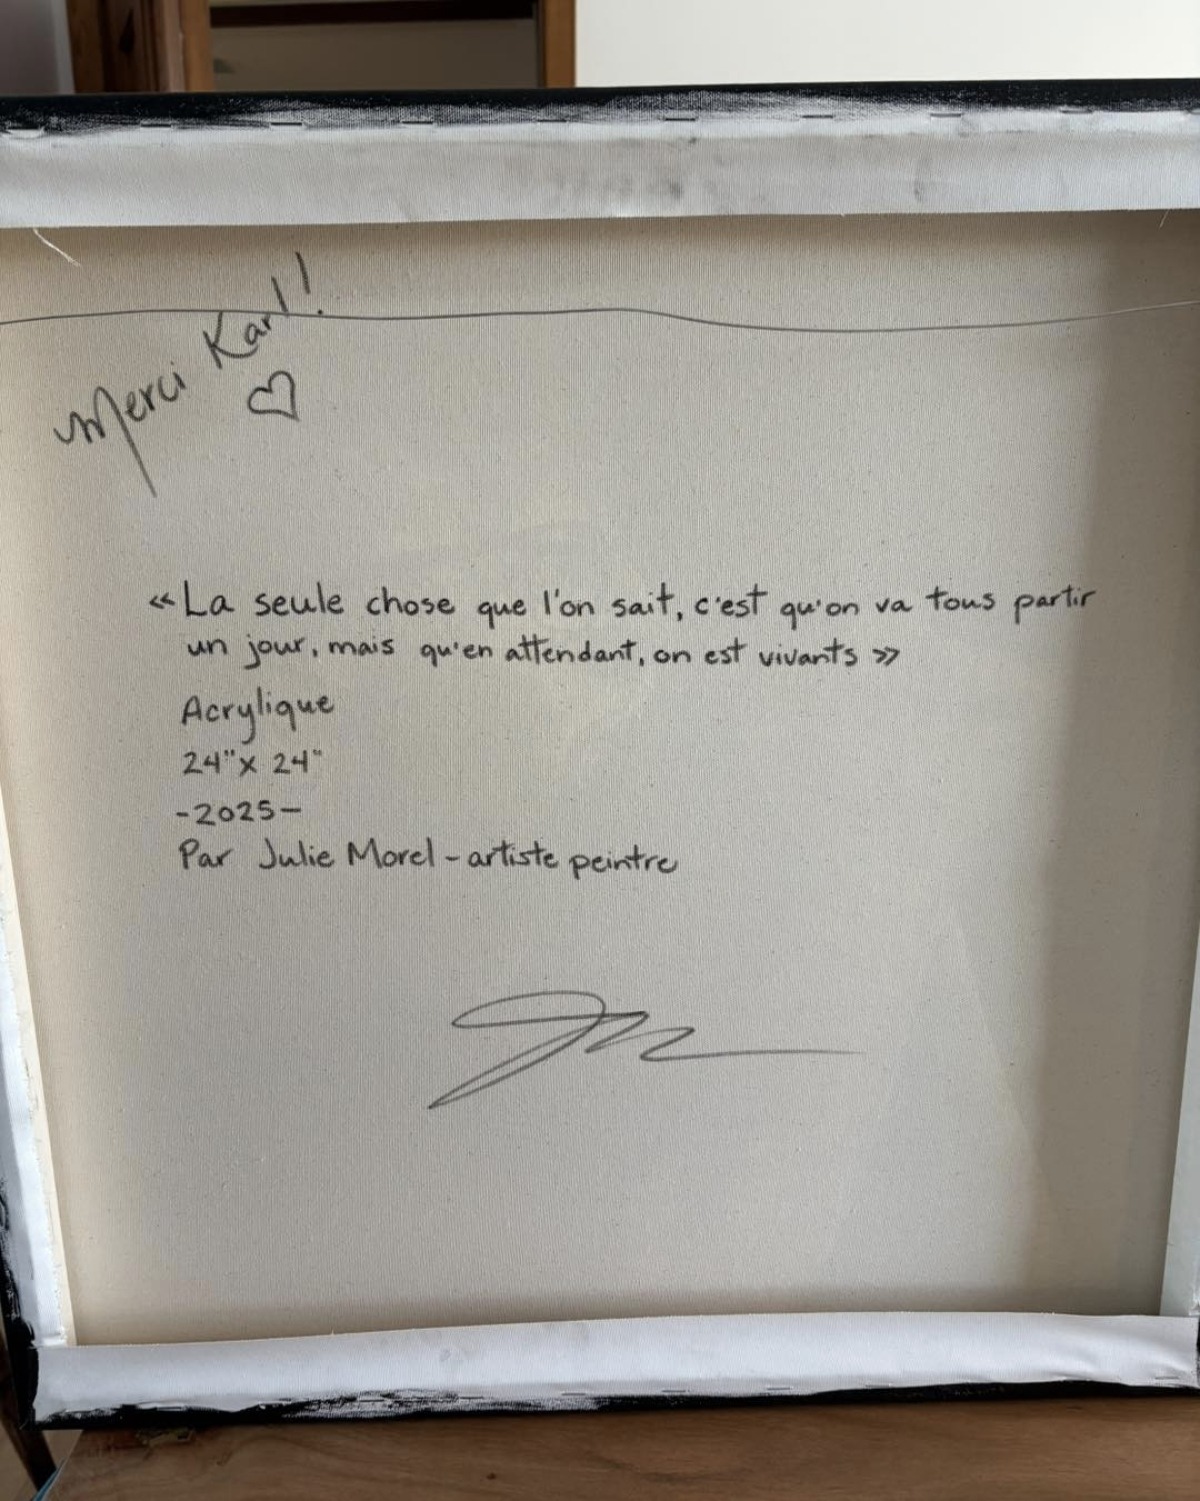 Merci Karl! ♡
« La seule chose que l'on sait, c'est qu'on va tous partir
un jour, mais qu'en attendant, on est vivants »
Acrylique
24"x 24"
-2025-
Par Julie Morel - artiste peintre